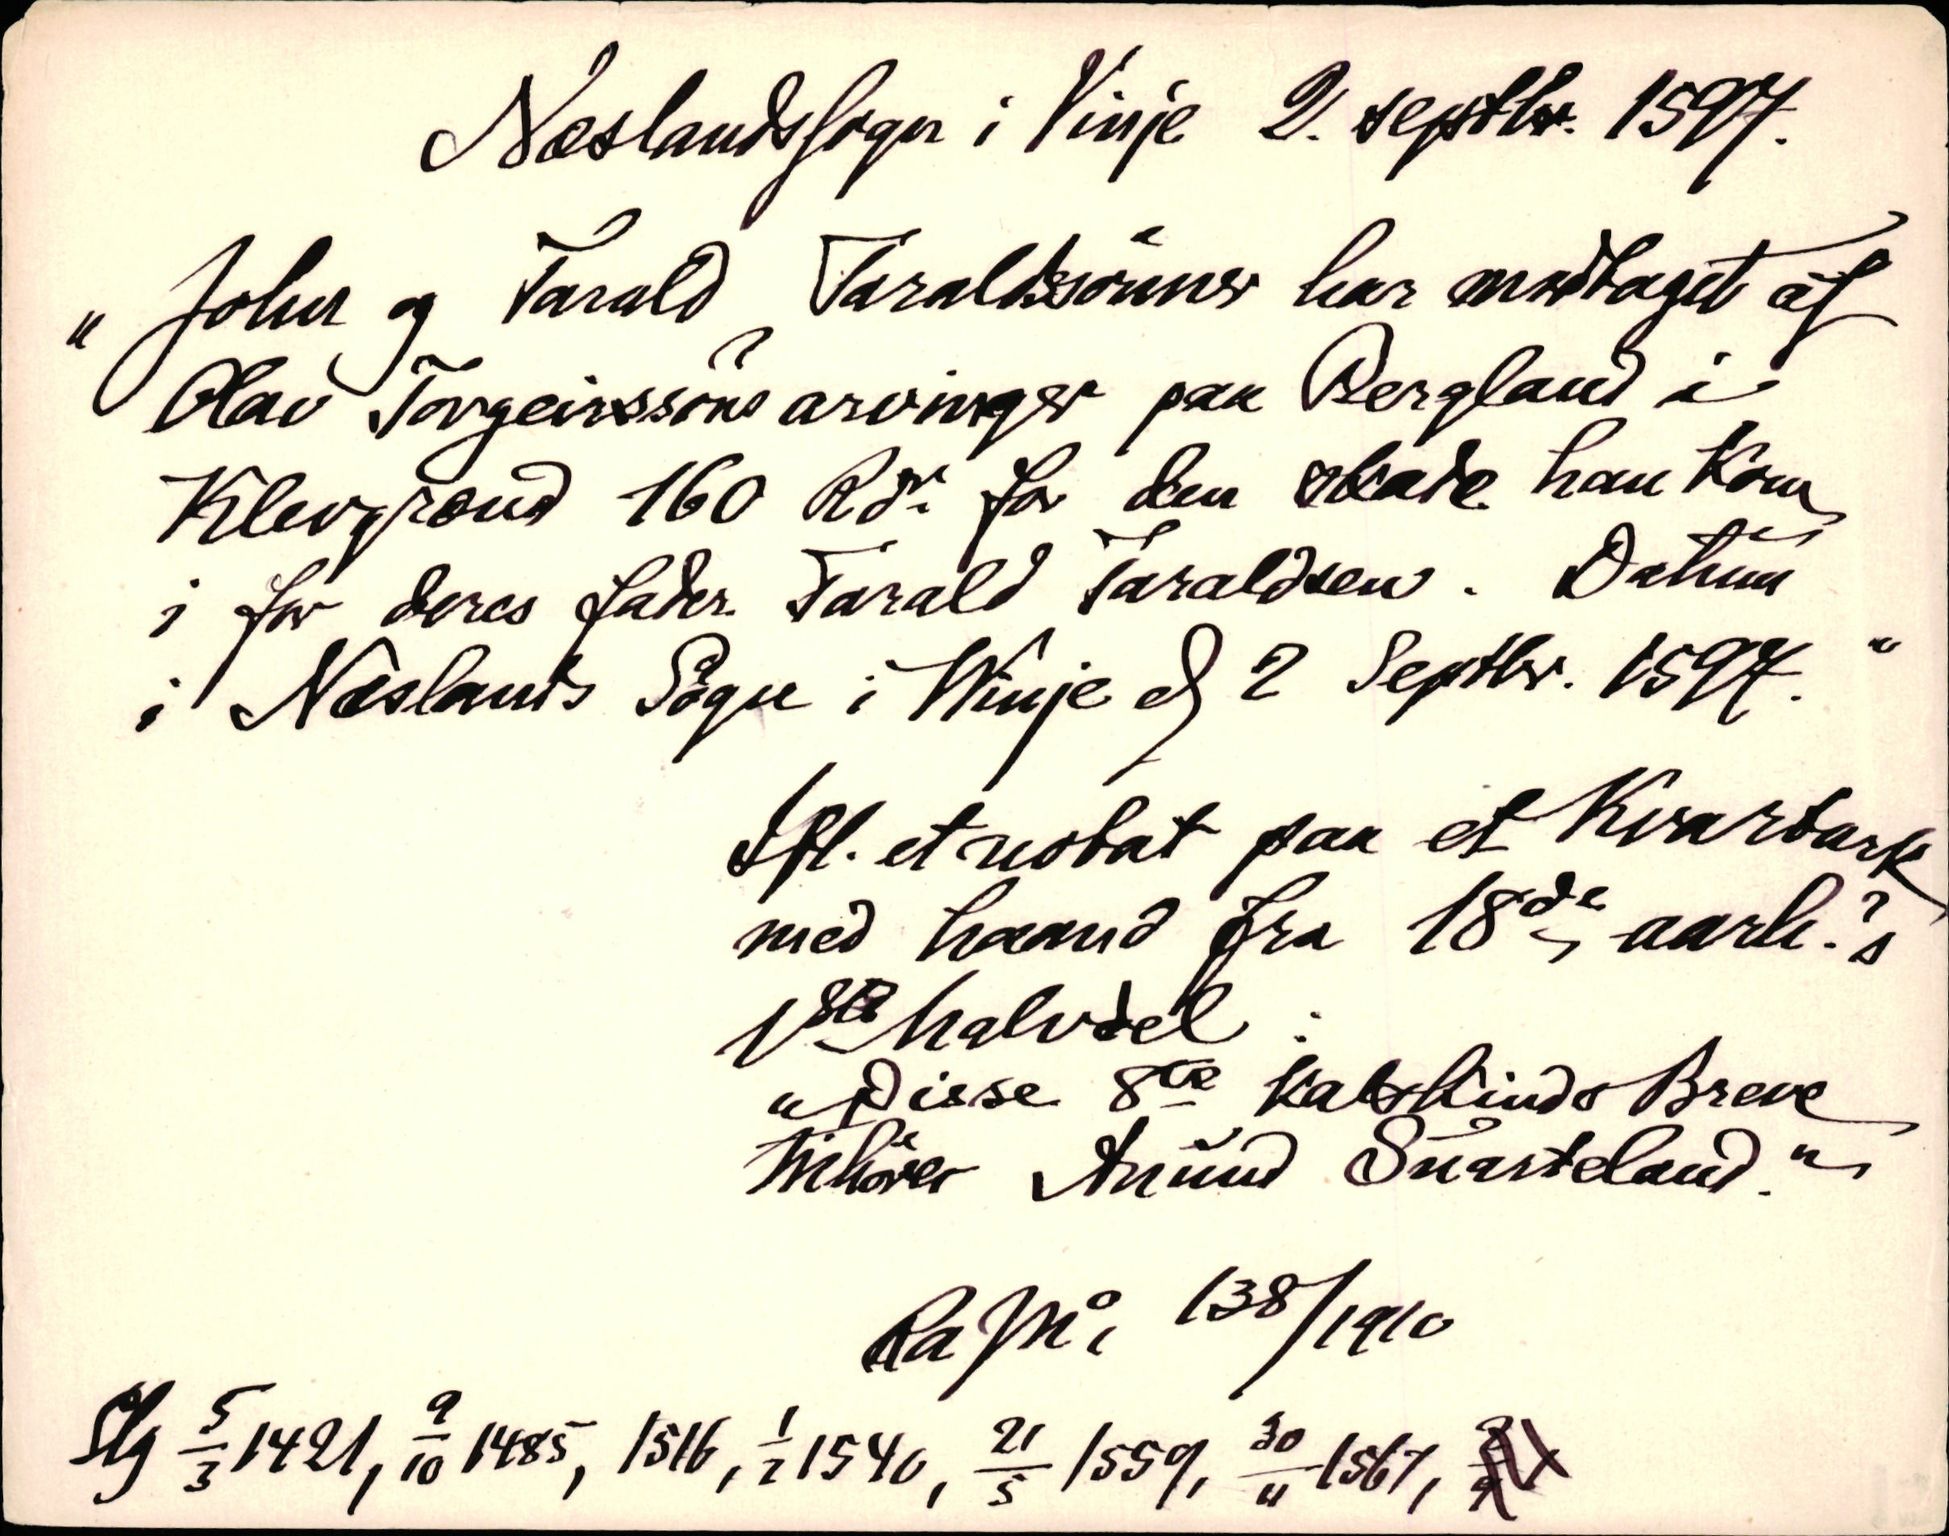 Næslandssogn i Vinje 2. septbr. 1597.
"John og Tarald Taraldssönner har modtaget af
Olav Torgeirssöns arvinger paa Bergland i
Klevgrænd 160 Rdr. for den skade han kom
i for deres fader Tarald Taraldsen. Datum
i Næslands Sogn i Winje d 2 Septbr. 1597."
Ifl. et notat paa et Kvartark
med haand fra 18de aarh.'s
1ste halvdel:
"Disse 8te kalskinds Breve
tilhører Anund Suarteland."
138/1910
5/3 1421, 9/10 1485, 1516, 1/2 1540, 21/5 1559, 30/11 1567,